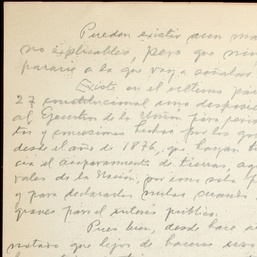 Pueden existir aun ma
no explicables, pero que nin
pararse a la que voy a señalar
Existe en el ultimo pár
27 constitucional una disposi
al Ejecutivo de la Unión para
tos y concesiones hechas por los go
desde el año de 1876, que hayan t
cia el acaparamiento de tierras, ag
rales de la Nación, por una sola p
y para declararlos nulos cuando
graves para el interés público.
Pues bien, desde hace a
notado que lejos de hacerse uso